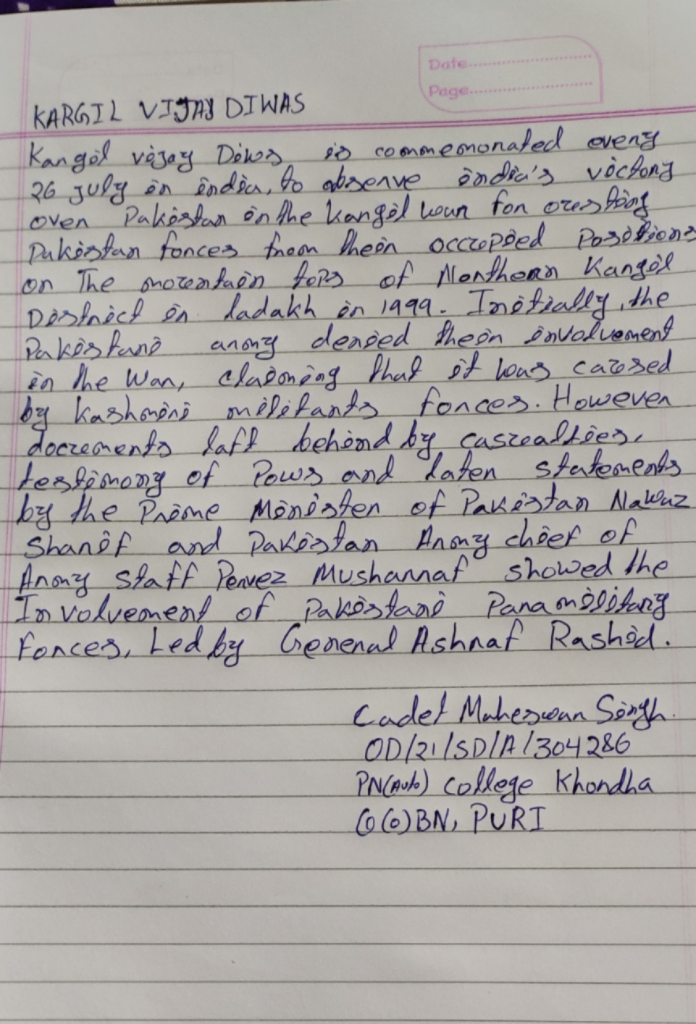 Date
Page
KARGIL VIJAY DIWAS
Kargil vijay Diws is commemorated every
26 july in india, to observe india's victory
over Pakistan in the kargil war for ousting
Pakistan forces from their occupied Positions
on The mountain tops of Northern Kargil
District in ladakh in 1999. Initially, the
Pakistani army denied their involvement
in the War, claiming that it was caused
by kashmiri militants forces. However
documents laft behind by casualties,
testimony of Pows and later statements
by the Prime Minister of Pakistan Nawaz
Sharif and Pakistan Army chief of
Army staff Pervez Musharraf showed the
Involvement of Pakistani Paramilitary
Forces, Led by General Ashraf Rashid.
Cadet Maheswar Singh.
OD/21/SD/A/304286
PN(Auto) College Khordha
(O) BN, PURI